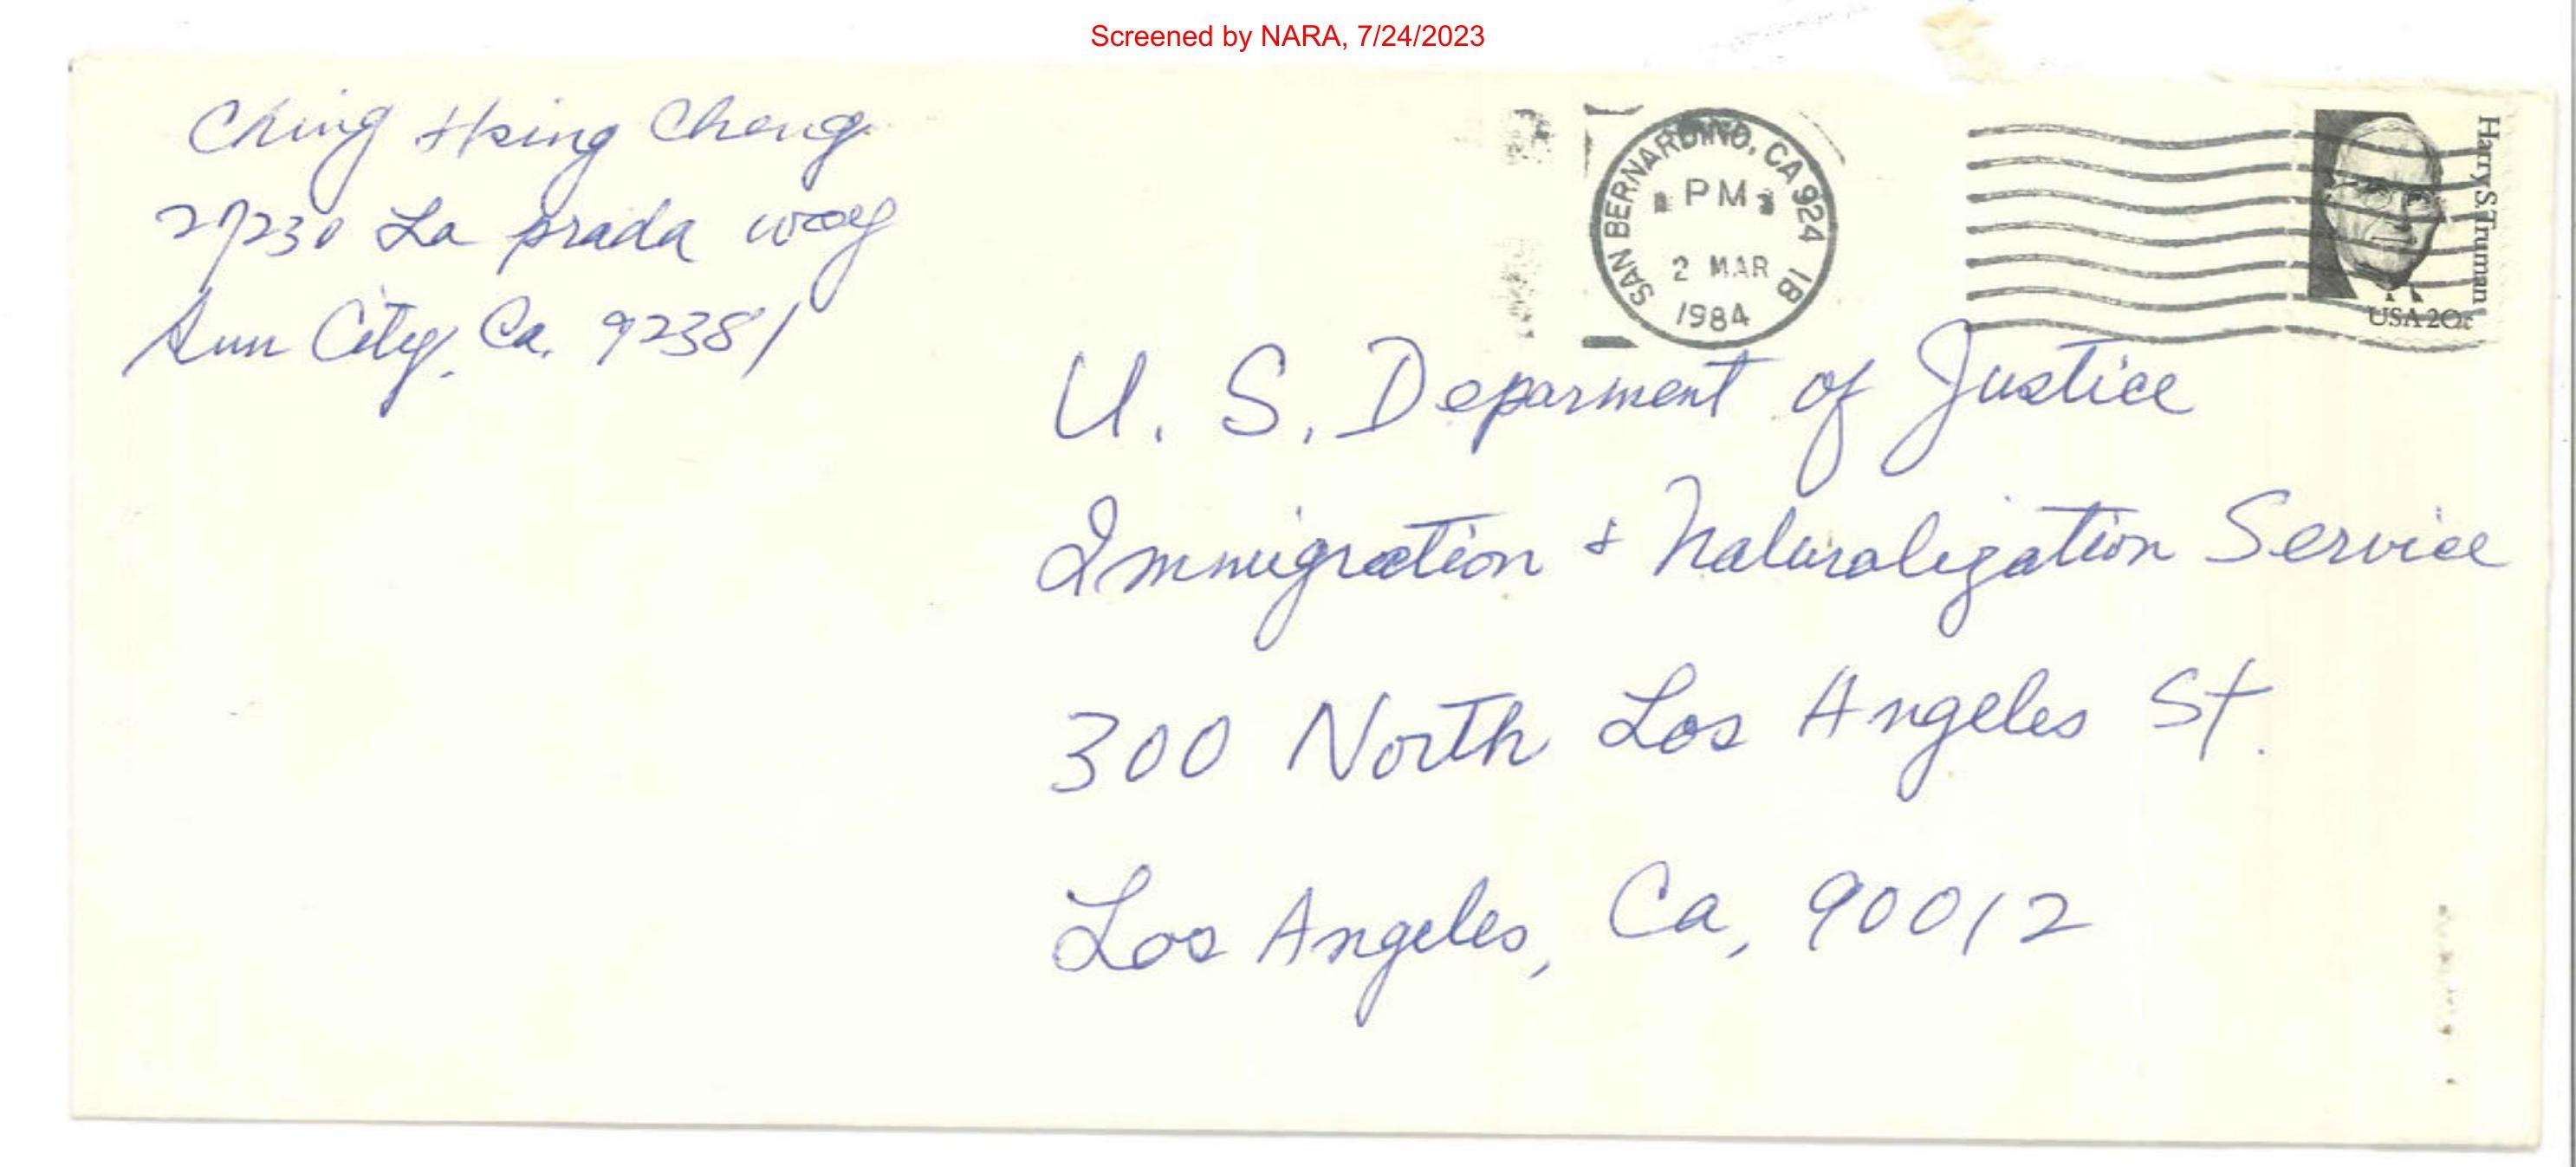 Screened by NARA, 7/24/2023
Ching Hsing Cheng
27230 La prada way
Sun City, Ca. 92381
SAN BERNARDINO, CA 924 1B
PM
2 MAR
1984
Harry S Truman
USA 20c
U. S. Deparment of Justice
Immigration & Naturalization Service
300 North Los Angeles St.
Los Angeles, Ca, 90012